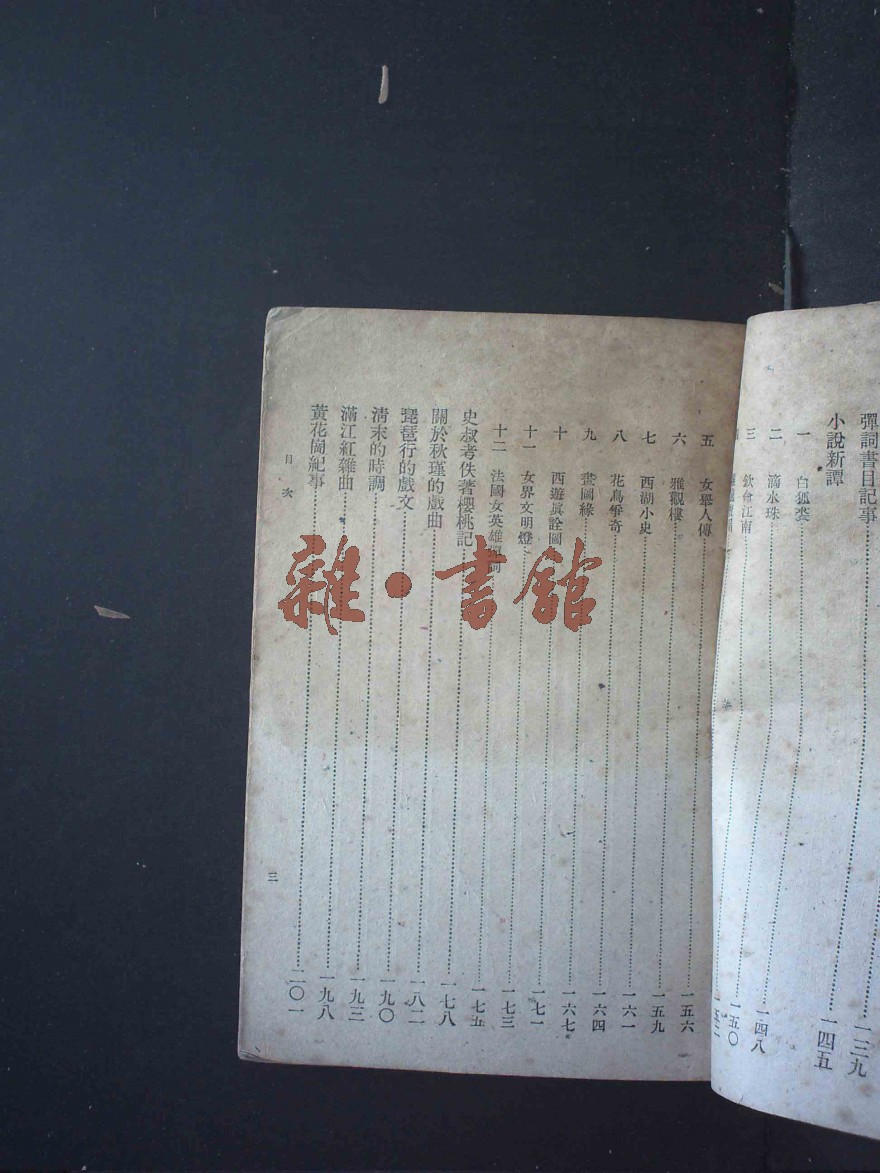 彈詞書目記事……一三九
小說新譚……一四五
一 白狐裘……
二 滴水珠……一四八
三 欽會江南……一五〇
五 女舉人傳……一五六
六 雅觀樓……一五九
七 西湖小史……一六一
八 花鳥爭奇……一六四
九 畫圖緣……一六七
十 西遊眞詮圖……一七一
十一 女界文明燈……一七三
十二 法國女英雄彈詞……一七五
史叔考佚著櫻桃記……一七八
關於秋瑾的戲曲……一八二
琵琶行的戲文……一九〇
清末的時調……一九三
滿江紅雜曲……一九八
黃花崗紀事……二〇一
目次
三
雜·書館